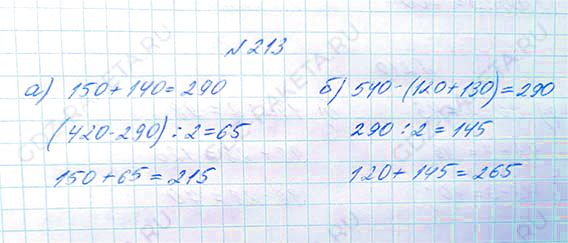 № 213
а) 150 + 140 = 290
(420 - 290) : 2 = 65
150 + 65 = 215
б) 540 - (120 + 130) = 290
290 : 2 = 145
120 + 145 = 265
GDZ-RAKETA.RU